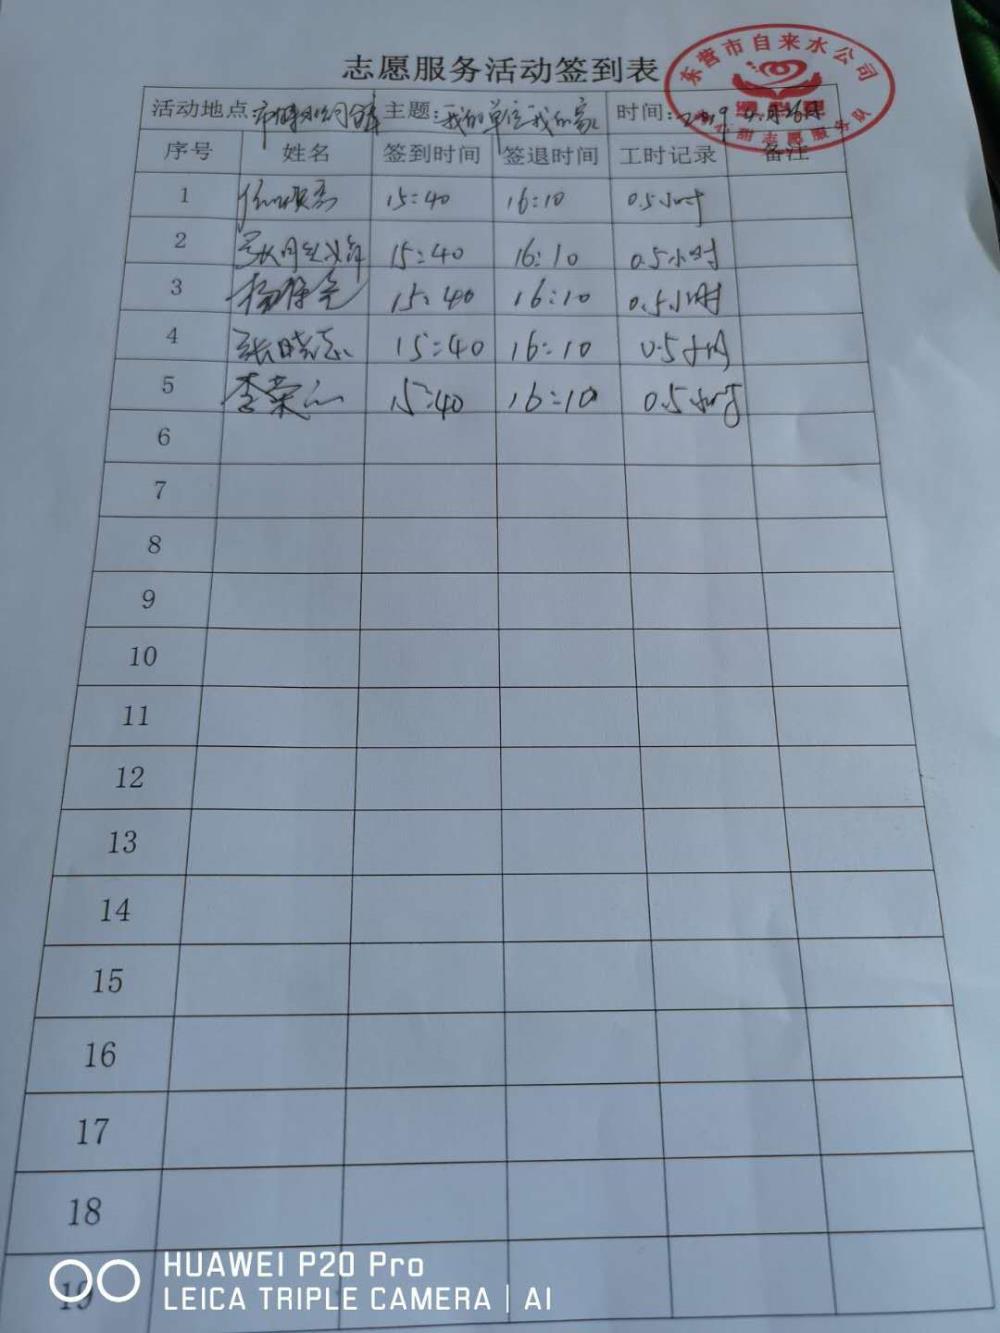 东营市自来水公司
志愿服务活动签到表
活动地点: 主题:我的单位我的家 时间:2019 4月26日
序号 姓名 签到时间 签退时间 工时记录 备注
1 15:40 16:10 0.5小时
2 15:40 16:10 0.5小时
3 15:40 16:10 0.5小时
4 张晓 15:40 16:10 0.5小时
5 李荣 15:40 16:10 0.5小时
6
7
8
9
10
11
12
13
14
15
16
17
18
19
HUAWEI P20 Pro
LEICA TRIPLE CAMERA | AI